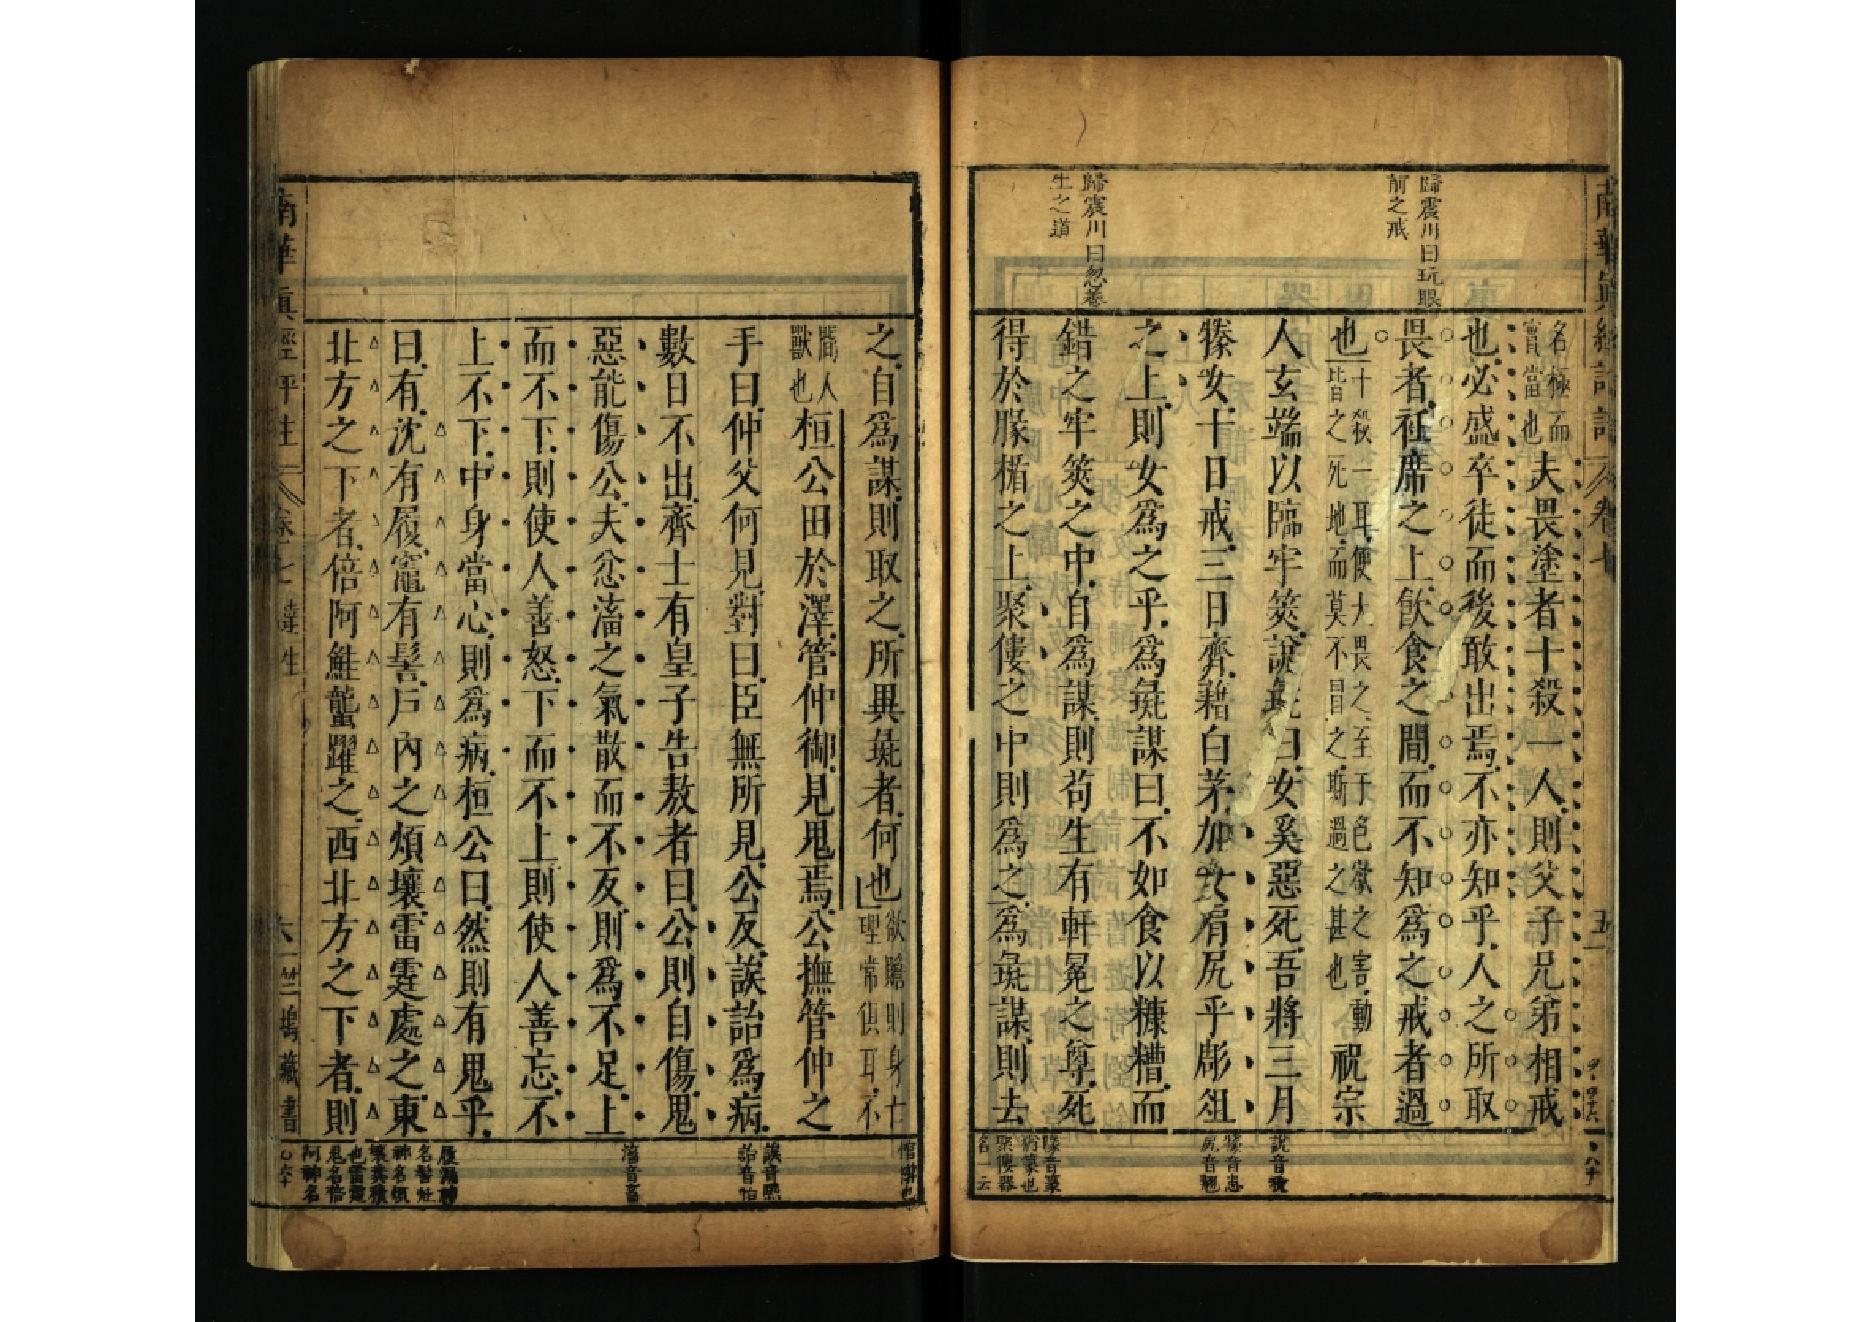 歸震川曰玩眼
前之戒
歸震川曰忽養
生之道
名極而
實當也
夫畏塗者十殺一人則父子兄弟相戒
也必盛卒徒而後敢出焉不亦知乎人之所取
畏者衽席之上飲食之間而不知爲之戒者過
也
十殺一耳便大畏之至于色欲之害動
皆之死地而莫不冒之斯過之甚也
祝宗
人玄端以臨牢筴說彘曰女奚惡死吾將三月
㹖女十日戒三日齊藉白茅加女肩尻乎彫俎
之上則女爲之乎爲彘謀曰不如食以糠糟而
錯之牢筴之中自爲謀則苟生有軒冕之尊死
得於腞楯之上聚僂之中則爲之爲彘謀則去
說音稅
㹖音患
尻音翹
南華眞經評註
卷七
五
之自爲謀則取之所異彘者何也
欲贍則身亡
理常俱耳不
間人
獸也
桓公田於澤管仲御見鬼焉公撫管仲之
手曰仲父何見對曰臣無所見公反誒詒爲病
數日不出齊士有皇子告敖者曰公則自傷鬼
惡能傷公夫忿滀之氣散而不反則爲不足上
而不下則使人善怒下而不上則使人善忘不
上不下中身當心則爲病桓公曰然則有鬼乎
曰有沈有履竈有髻戶內之煩壤雷霆處之東
北方之下者倍阿鮭蠪躍之西北方之下者則
誒音熙
詒音怡
滀音畜
南華眞經評註
卷七
達生
六
竺塢藏書